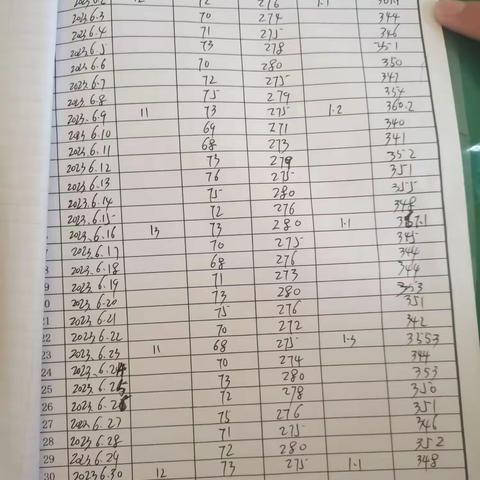 2023.6.2 12 72 276 1.1
2023.6.3 70 274 344
2023.6.4 71 275 346
2023.6.5 73 278 351
2023.6.6 70 280 350
2023.6.7 72 275 347
2023.6.8 75 279 354
2023.6.9 11 73 275 1.2 360.2
2023.6.10 69 271 340
2023.6.11 68 273 341
2023.6.12 73 279 352
2023.6.13 76 275 351
2023.6.14 75 280 355
2023.6.15 72 276 348
2023.6.16 13 73 280 1.1
2023.6.17 70 275 345
18 2023.6.18 68 276 344
19 2023.6.19 71 273 344
20 2023.6.20 73 280 353
21 2023.6.21 75 276 351
22 2023.6.22 70 272 342
23 2023.6.23 11 68 275 1.3 355.3
24 2023.6.24 70 274 344
25 2023.6.25 73 280 353
26 2023.6.26 72 278 350
27 2023.6.27 75 276 351
28 2023.6.28 71 275 346
29 2023.6.29 72 280 352
30 2023.6.30 12 73 275 1.1 348